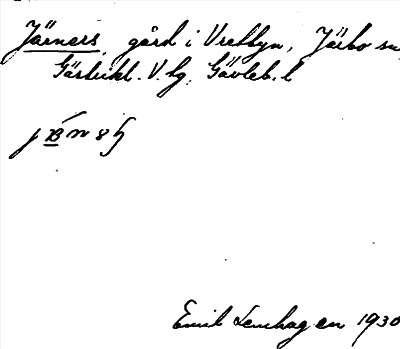 Järners, gård i Vretbyn, Järbo sn,
Gästrikl. V. tg, Gävleb. l
Emil Lenhagen 1930